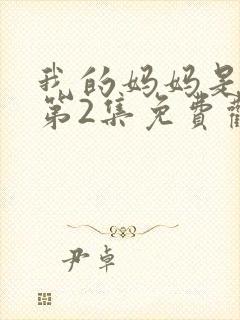 我的妈妈是
第2集免费
尹卓